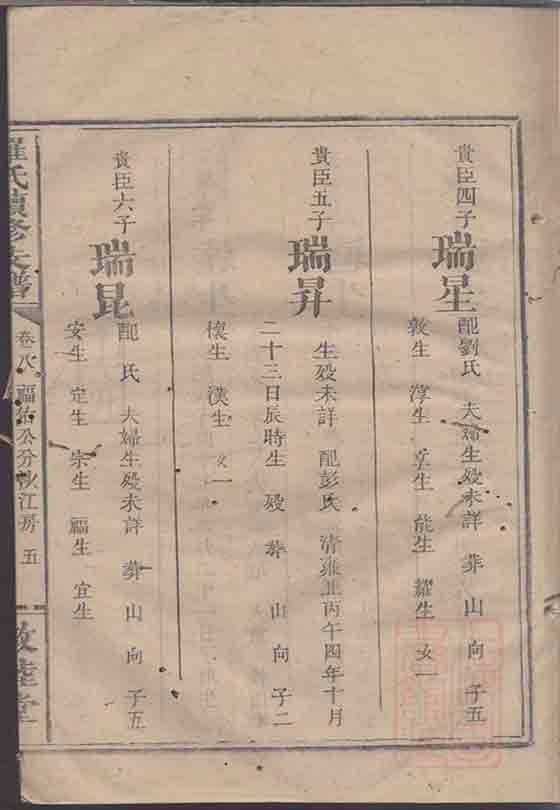 貴臣四子
瑞星
配劉氏 夫婦生殁未詳 葬 山 向 子五
敦生 淳生 享生 能生 耀生 女一
貴臣五子
瑞昇
生殁未詳 配彭氏 清雍正丙午四年十月
二十三日辰時生 殁 葬 山 向 子二
懷生 漢生 女一
貴臣六子
瑞昆
配 氏 夫婦生殁未詳 葬 山 向 子五
安生 定生 宗生 福生 宜生
羅氏續修支譜
卷八 福佑公分沙江房 五
敦睦堂